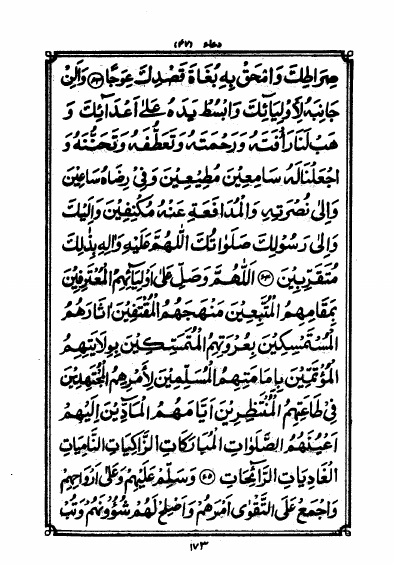 دعاء (۴۷)
صِرَاطِكَ وَامْحَقْ بِهِ بُغَاةَ قَصْدِكَ عِوَجًا (۶۳) وَأَلِنْ
جَانِبَهُ لِأَوْلِيَائِكَ وَابْسُطْ يَدَهُ عَلَىٰ أَعْدَائِكَ وَ
هَبْ لَنَا رَأْفَتَهُ وَرَحْمَتَهُ وَتَعَطُّفَهُ وَتَحَنُّنَهُ وَ
اجْعَلْنَا لَهُ سَامِعِينَ مُطِيعِينَ وَفِي رِضَاهُ سَاعِينَ
وَإِلَىٰ نُصْرَتِهِ وَالْمُدَافَعَةِ عَنْهُ مُكْنِفِينَ وَإِلَيْكَ
وَإِلَىٰ رَسُولِكَ صَلَوَاتُكَ اللَّهُمَّ عَلَيْهِ وَآلِهِ بِذَٰلِكَ
مُتَقَرِّبِينَ (۶۴) اَللَّهُمَّ وَصَلِّ عَلَىٰ أَوْلِيَائِهِمُ الْمُعْتَرِفِينَ
بِمَقَامِهِمُ الْمُتَّبِعِينَ مَنْهَجَهُمُ الْمُقْتَفِينَ اٰثَارَهُمُ
الْمُسْتَمْسِكِينَ بِعُرْوَتِهِمُ الْمُتَمَسِّكِينَ بِوِلَايَتِهِمُ
الْمُؤْتَمِّينَ بِإِمَامَتِهِمُ الْمُسَلِّمِينَ لِأَمْرِهِمُ الْمُجْتَهِدِينَ
فِي طَاعَتِهِمُ الْمُنْتَظِرِينَ أَيَّامَهُمُ الْمَادِّينَ إِلَيْهِمْ
أَعْيُنَهُمُ الصَّلَوَاتِ الْمُبَارَكَاتِ الزَّاكِيَاتِ النَّامِيَاتِ
الْغَادِيَاتِ الرَّائِحَاتِ (۶۵) وَسَلِّمْ عَلَيْهِمْ وَعَلَىٰ أَرْوَاحِهِمْ
وَاجْمَعْ عَلَى التَّقْوَىٰ أَمْرَهُمْ وَأَصْلِحْ لَهُمْ شُؤُونَهُمْ وَتُبْ
۱۷۳